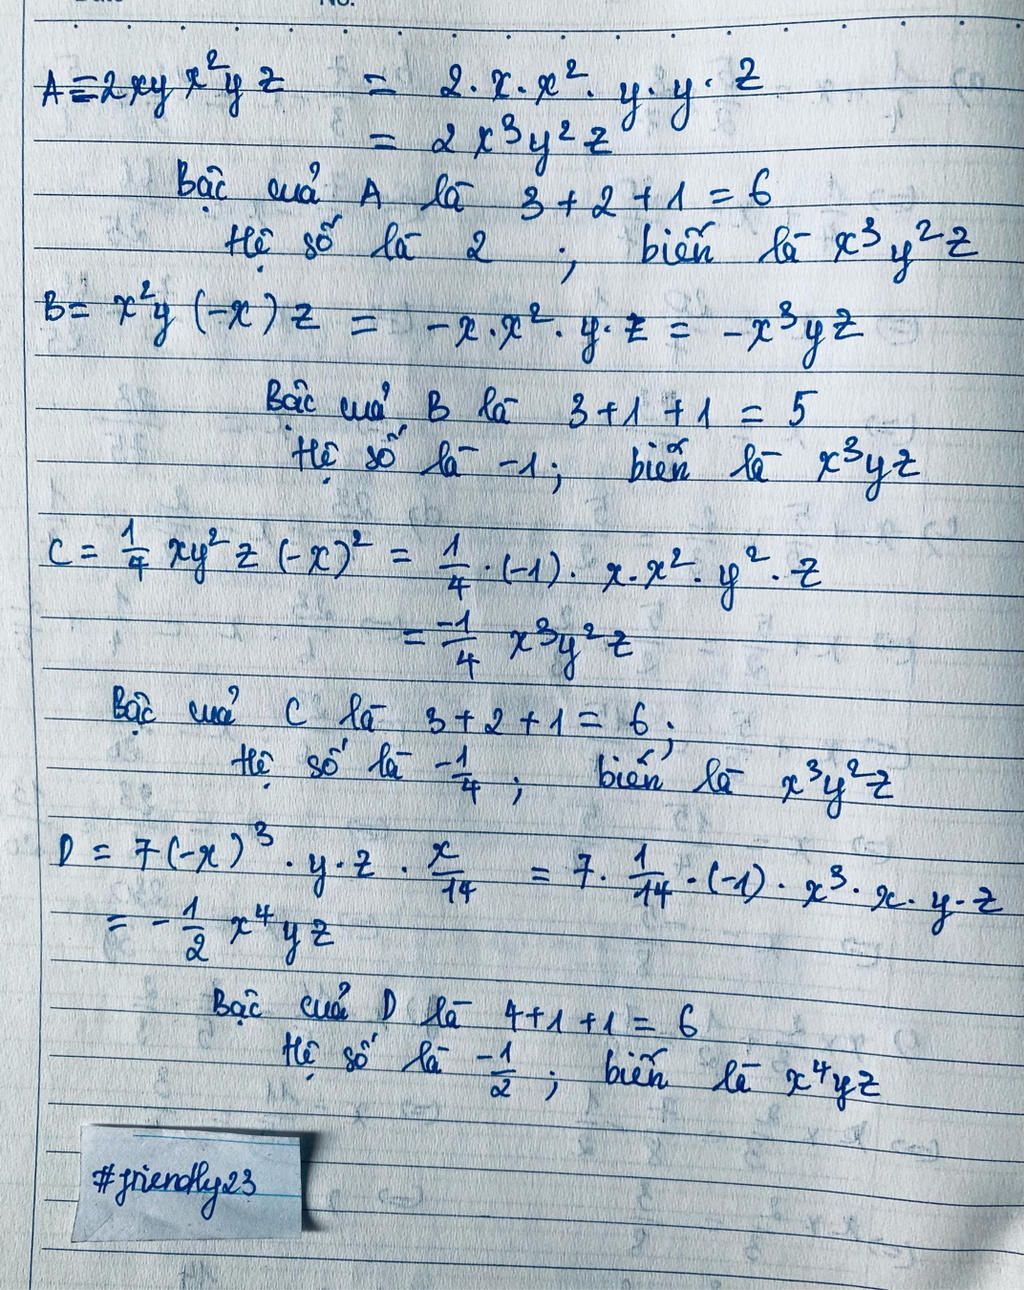 No.
A = 2xy x²y z = 2 . x . x² . y . y . z
= 2 x³y²z
Bậc cuả A là 3 + 2 + 1 = 6
Hệ số là 2 ; biến là x³y²z
B = x²y (-x) z = -x . x² . y . z = -x³yz
Bậc cuả B là 3 + 1 + 1 = 5
Hệ số là -1 ; biến là x³yz
C = 1/4 xy²z (-x)² = 1/4 . (-1) . x . x² . y² . z
= -1/4 x³y²z
Bậc cuả C là 3 + 2 + 1 = 6 ;
Hệ số là -1/4 ; biến là x³y²z
D = 7 (-x)³ . y . z . x/14 = 7 . 1/14 . (-1) . x³ . x . y . z
= - 1/2 x⁴yz
Bậc cuả D là 4 + 1 + 1 = 6
Hệ số là -1/2 ; biến là x⁴yz
#friendly23